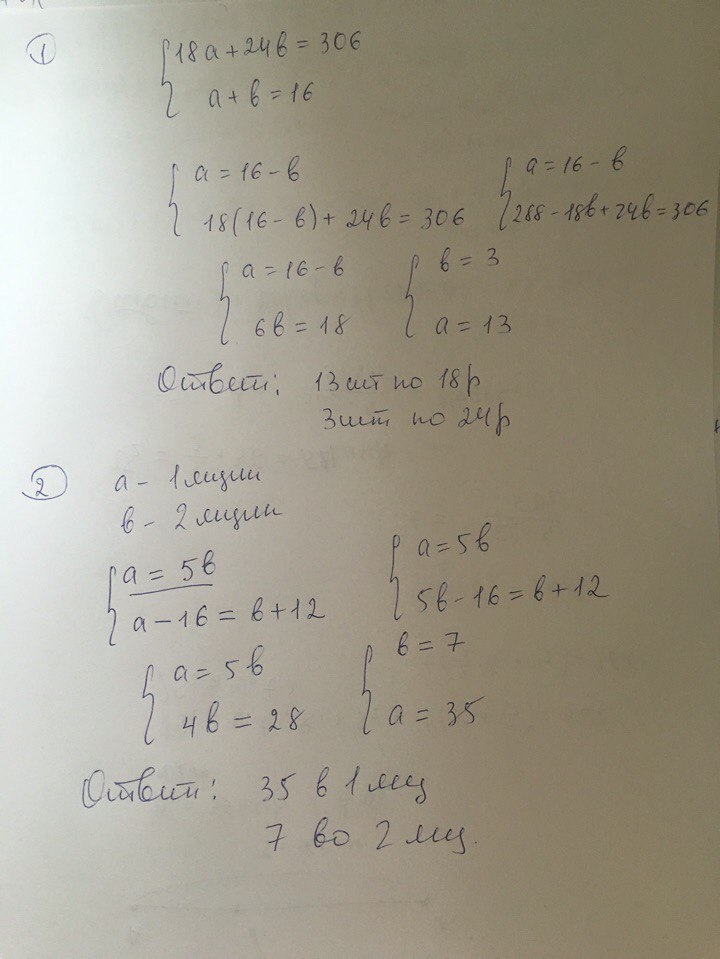 1
18a + 24b = 306
a + b = 16
a = 16 - b
18(16 - b) + 24b = 306
a = 16 - b
288 - 18b + 24b = 306
a = 16 - b
6b = 18
b = 3
a = 13
Ответ: 13 шт по 18р
3 шт по 24р
2
a - 1
b - 2
a = 5b
a - 16 = b + 12
a = 5b
5b - 16 = b + 12
a = 5b
4b = 28
b = 7
a = 35
Ответ: 35 в 1
7 во 2